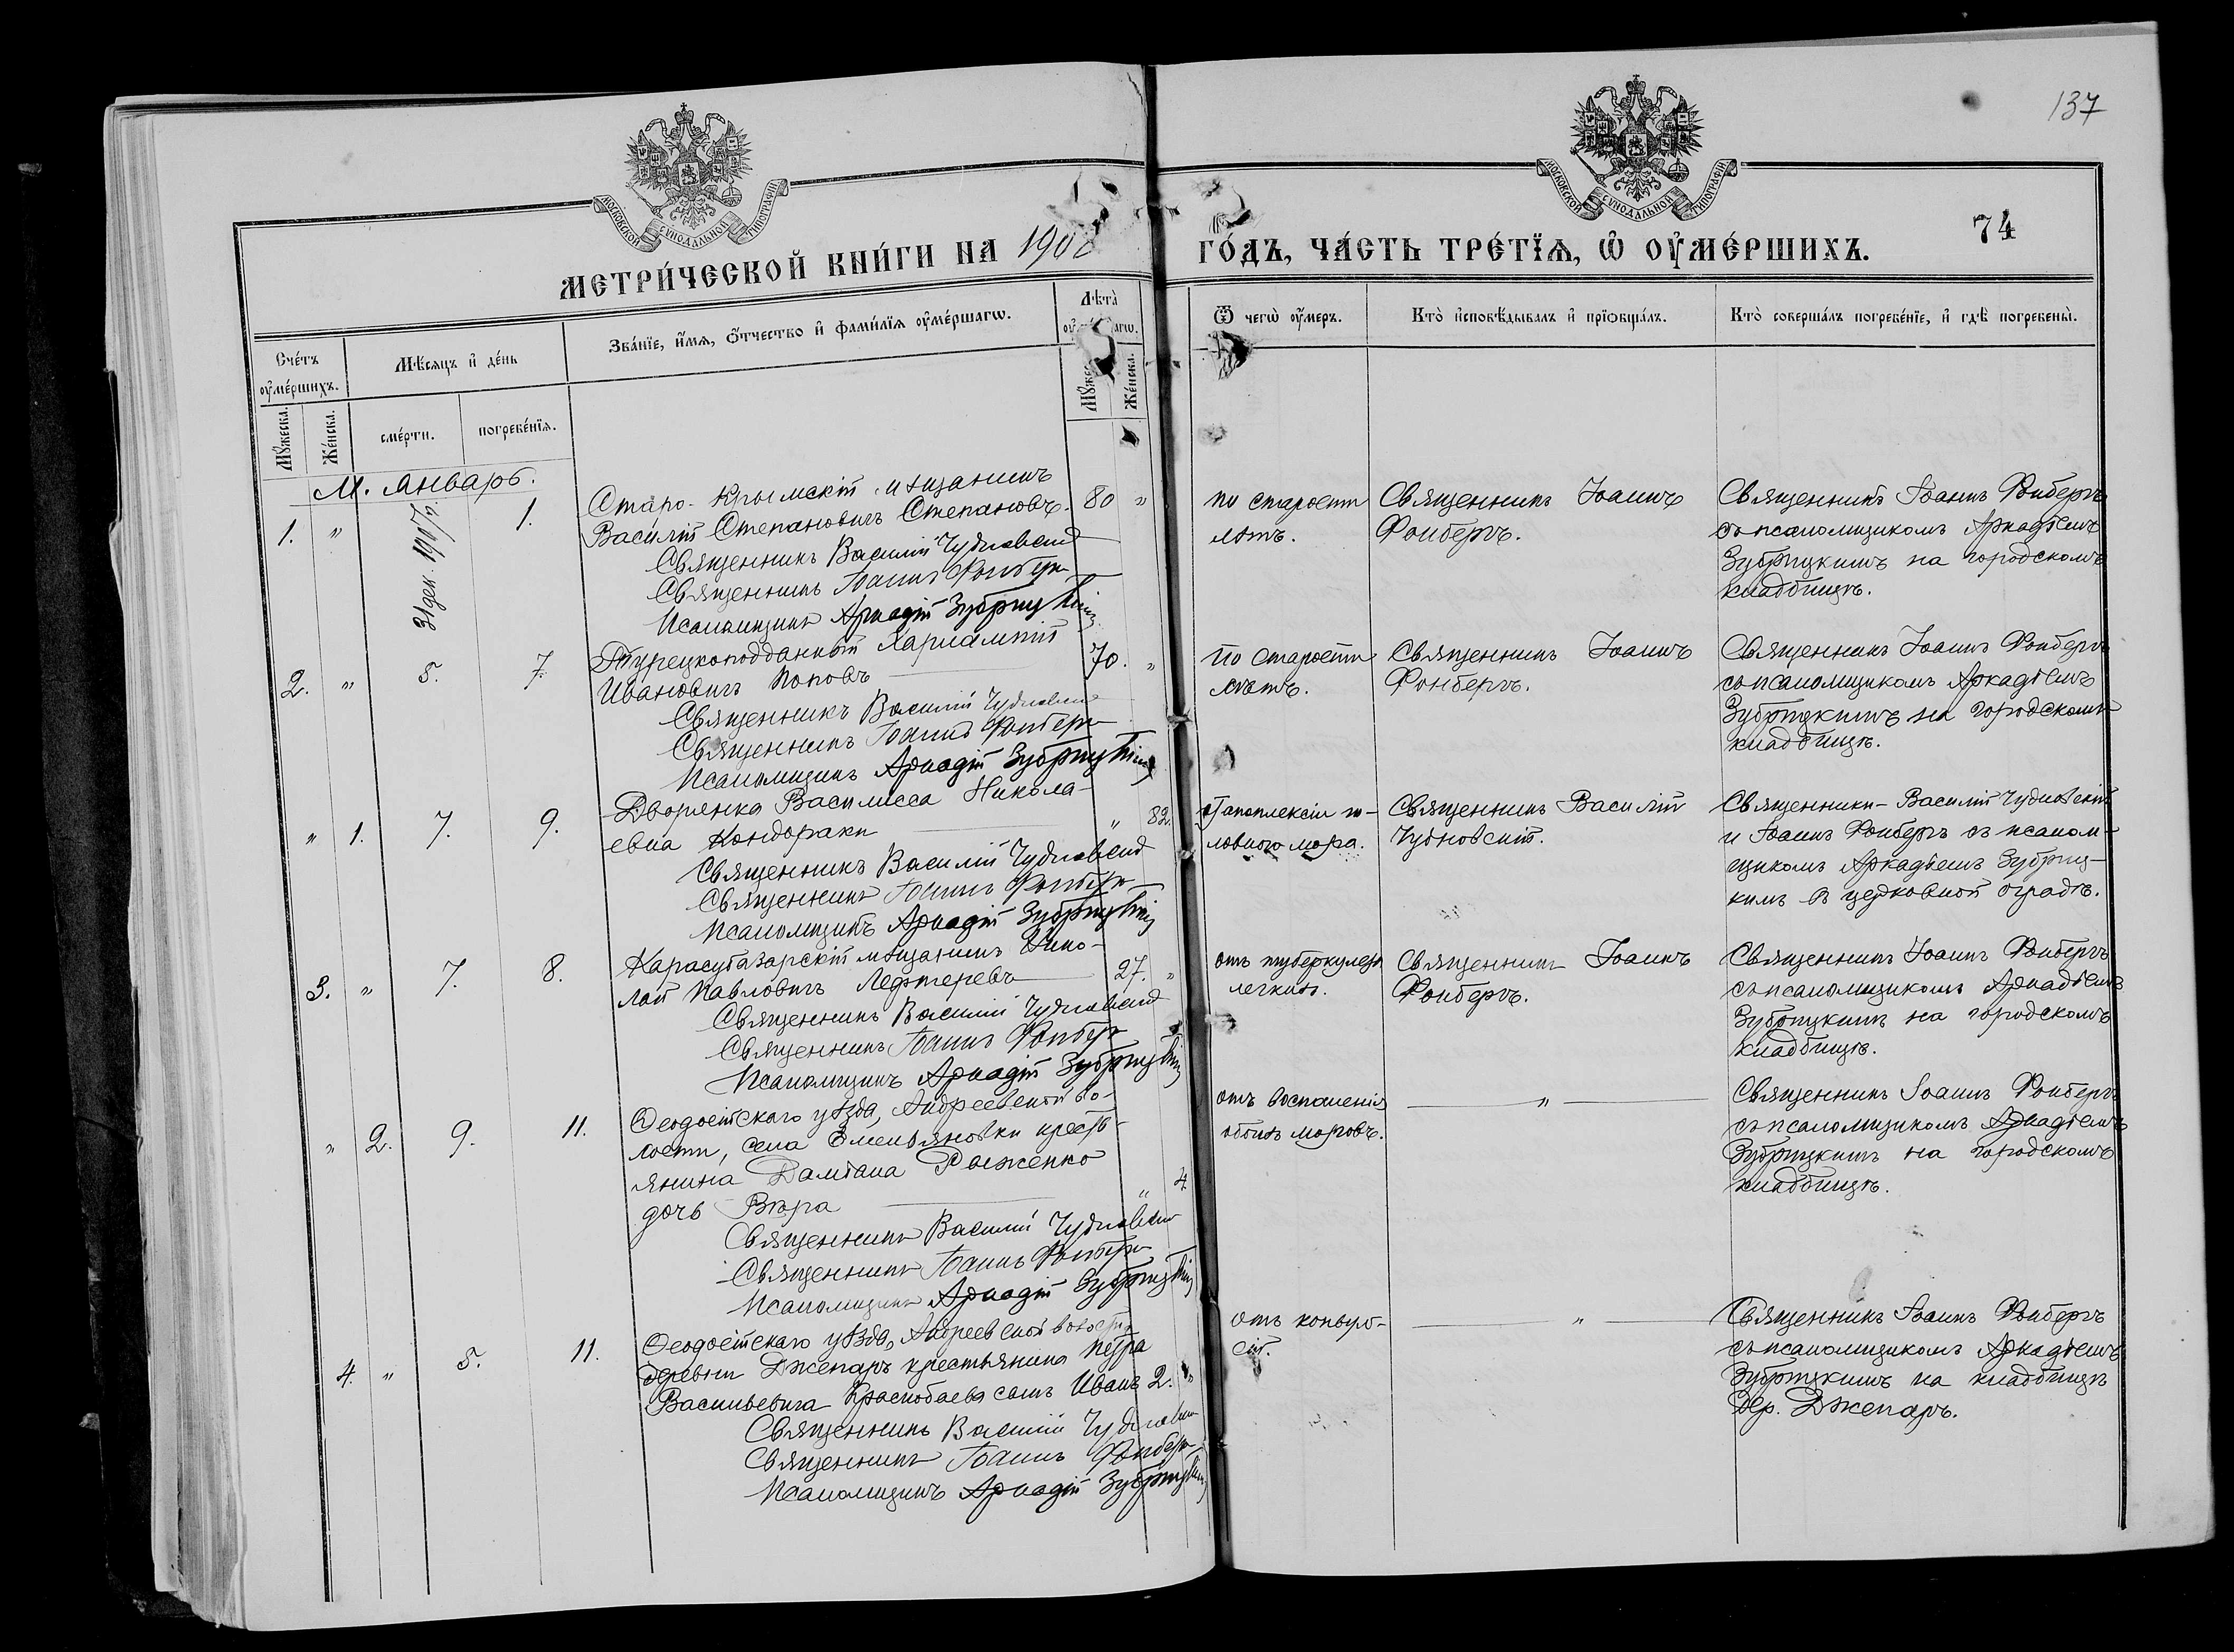 137
МОСКОВСКОЙ СѴНОДАЛЬНОЙ ТИПОГРАФІИ
МОСКОВСКОЙ СѴНОДАЛЬНОЙ ТИПОГРАФІИ
74
МЕТРИ́ЧЕСКОЙ КНИ́ГИ НА 1908
ГО́ДЪ, ЧА́СТЬ ТРЕ́ТЇѦ, Ѡ҆ ОУ҆МЕ́РШИХЪ.
Сче́тъ оу҆ме́ршихъ.
Мѣ́сяцъ и҆ де́нь
Зва́нїе, и҆́мѧ, ѻ҆́тчество и҆ фами́лїѧ оу҆ме́ршагѡ.
Лѣта̀
Мꙋ́жеска.
Же́нска.
сме́рти.
погребе́нїѧ.
Же́нска.
Ѿ чегѡ̀ оу҆́меръ.
Кто̀ и҆сповѣ́дывалъ и҆ прїѡбща́лъ.
Кто̀ соверша́лъ погребе́нїе, и҆ гдѣ̀ погребены̀.
М. Январь.
1. " 31 дек. 1907 г. 1.
Старо-Крымскій мѣщанинъ
Василій Степановичъ Степановъ. 80 "
Священникъ Василій Чудновскій
Священникъ Іоаннъ Фонбергъ
Псаломщикъ Аркадій Зубрицкій
по старости
лѣтъ.
Священникъ Іоаннъ
Фонбергъ.
Священникъ Іоаннъ Фонбергъ
съ псаломщикомъ Аркадіемъ
Зубрицкимъ на городскомъ
кладбищѣ.
2. " 5. 7.
Турецкоподданный Харлампій
Ивановичъ Поповъ 70. "
Священникъ Василій Чудновскій
Священникъ Іоаннъ Фонбергъ
Псаломщикъ Аркадій Зубрицкій
По старости
лѣтъ.
Священникъ Іоаннъ
Фонбергъ.
Священникъ Іоаннъ Фонбергъ
съ псаломщикомъ Аркадіемъ
Зубрицкимъ на городскомъ
кладбищѣ.
" 1. 7. 9.
Дворянка Василисса Никола-
евна Кондораки " 82.
Священникъ Василій Чудновскій
Священникъ Іоаннъ Фонбергъ
Псаломщикъ Аркадій Зубрицкій
от апоплексіи го-
ловного мозга.
Священникъ Василій
Чудновскій.
Священники - Василій Чудновскій
и Іоаннъ Фонбергъ съ псалом-
щикомъ Аркадіемъ Зубриц-
кимъ въ церковной оградѣ.
3. " 7. 8.
Карасубазарскій мѣщанинъ Нико-
лай Павловичъ Лефтеревъ 27. "
Священникъ Василій Чудновскій
Священникъ Іоаннъ Фонбергъ
Псаломщикъ Аркадій Зубрицкій
отъ туберкулеза
легкихъ.
Священникъ Іоаннъ
Фонбергъ.
Священникъ Іоаннъ Фонбергъ
съ псаломщикомъ Аркадіемъ
Зубрицкимъ на городскомъ
кладбищѣ.
" 2. 9. 11.
Ѳеодосійскаго уѣзда, Андреевской во-
лости, села Емельяновки кресть-
янина Даміана Рыженко
дочь Вѣра " 4.
Священникъ Василій Чудновскій
Священникъ Іоаннъ Фонбергъ
Псаломщикъ Аркадій Зубрицкій
отъ воспаленія
обоихъ мозговъ.
"
Священникъ Іоаннъ Фонбергъ
съ псаломщикомъ Аркадіемъ
Зубрицкимъ на городскомъ
кладбищѣ.
4. " 5. 11.
Ѳеодосійскаго уѣзда, Андреевской волости
деревни Джепаръ крестьянина Петра
Васильевича Краснобаева сынъ Иванъ 2. "
Священникъ Василій Чудновскій
Священникъ Іоаннъ Фонбергъ
Псаломщикъ Аркадій Зубрицкій
отъ конвуль-
сій.
"
Священникъ Іоаннъ Фонбергъ
съ псаломщикомъ Аркадіемъ
Зубрицкимъ на кладбищѣ
дер. Джепаръ.